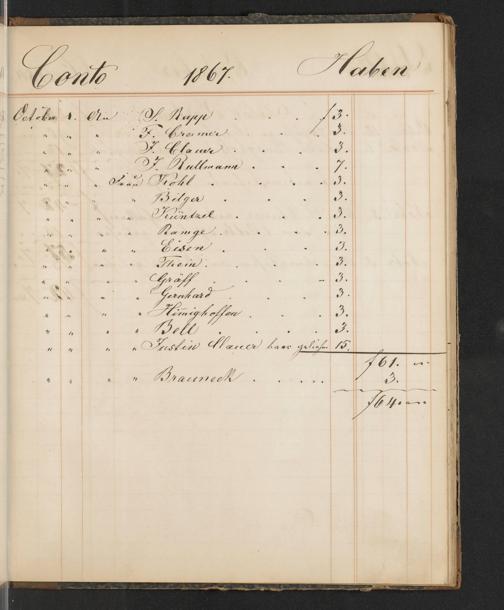 Conto 1867. Haben
Octobr 1. An S. Rupp . . . f 3.
" " " F. Cramer . . . f 3.
" " " F. Clauer . . . 3.
" " " F. Rullmann . . . 7.
" " Frau Kohl . . . 3.
" " " " Bölger . . . 3.
" " " " Küntzel . . . 3.
" " " " Ramge . . . 3.
" " " " Eisen . . . 3.
" " " " Thein . . . 3.
" " " " Gräff . . . 3.
" " " " Gernhard . . . 3.
" " " " Himighoffen . . . 3.
" " " " Bell . . . 3.
" " " " Justin Clauer baar geliehen 15.
f 61. —
" " " " Brauneck . . . 3.
f 64 —